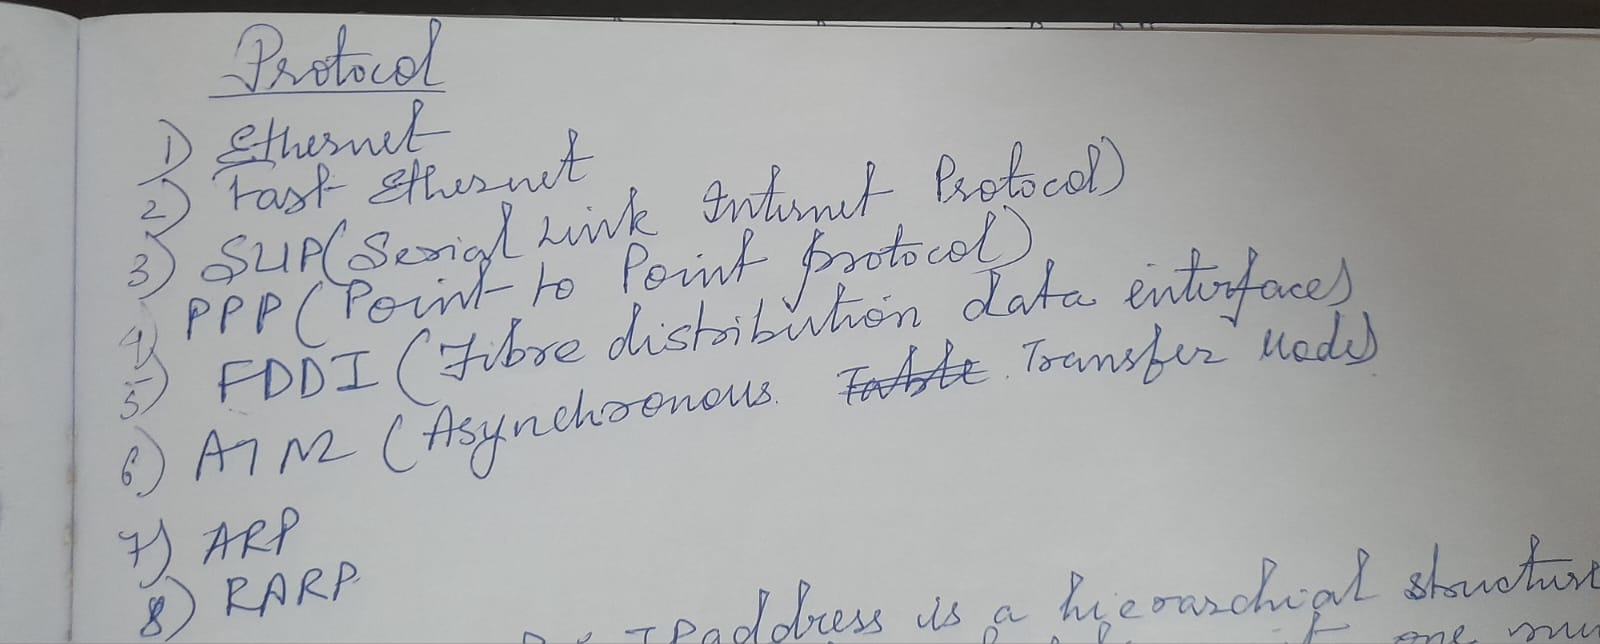 Protocol
1) Ethernet
2) Fast Ethernet
3) SLIP (Serial Link Internet Protocol)
4) PPP (Point to Point protocol)
5) FDDI (Fibre distribution data interface)
6) ATM (Asynchronous Table Transfer Mode)
7) ARP
8) RARP
IP address is a hierarchial structure
one